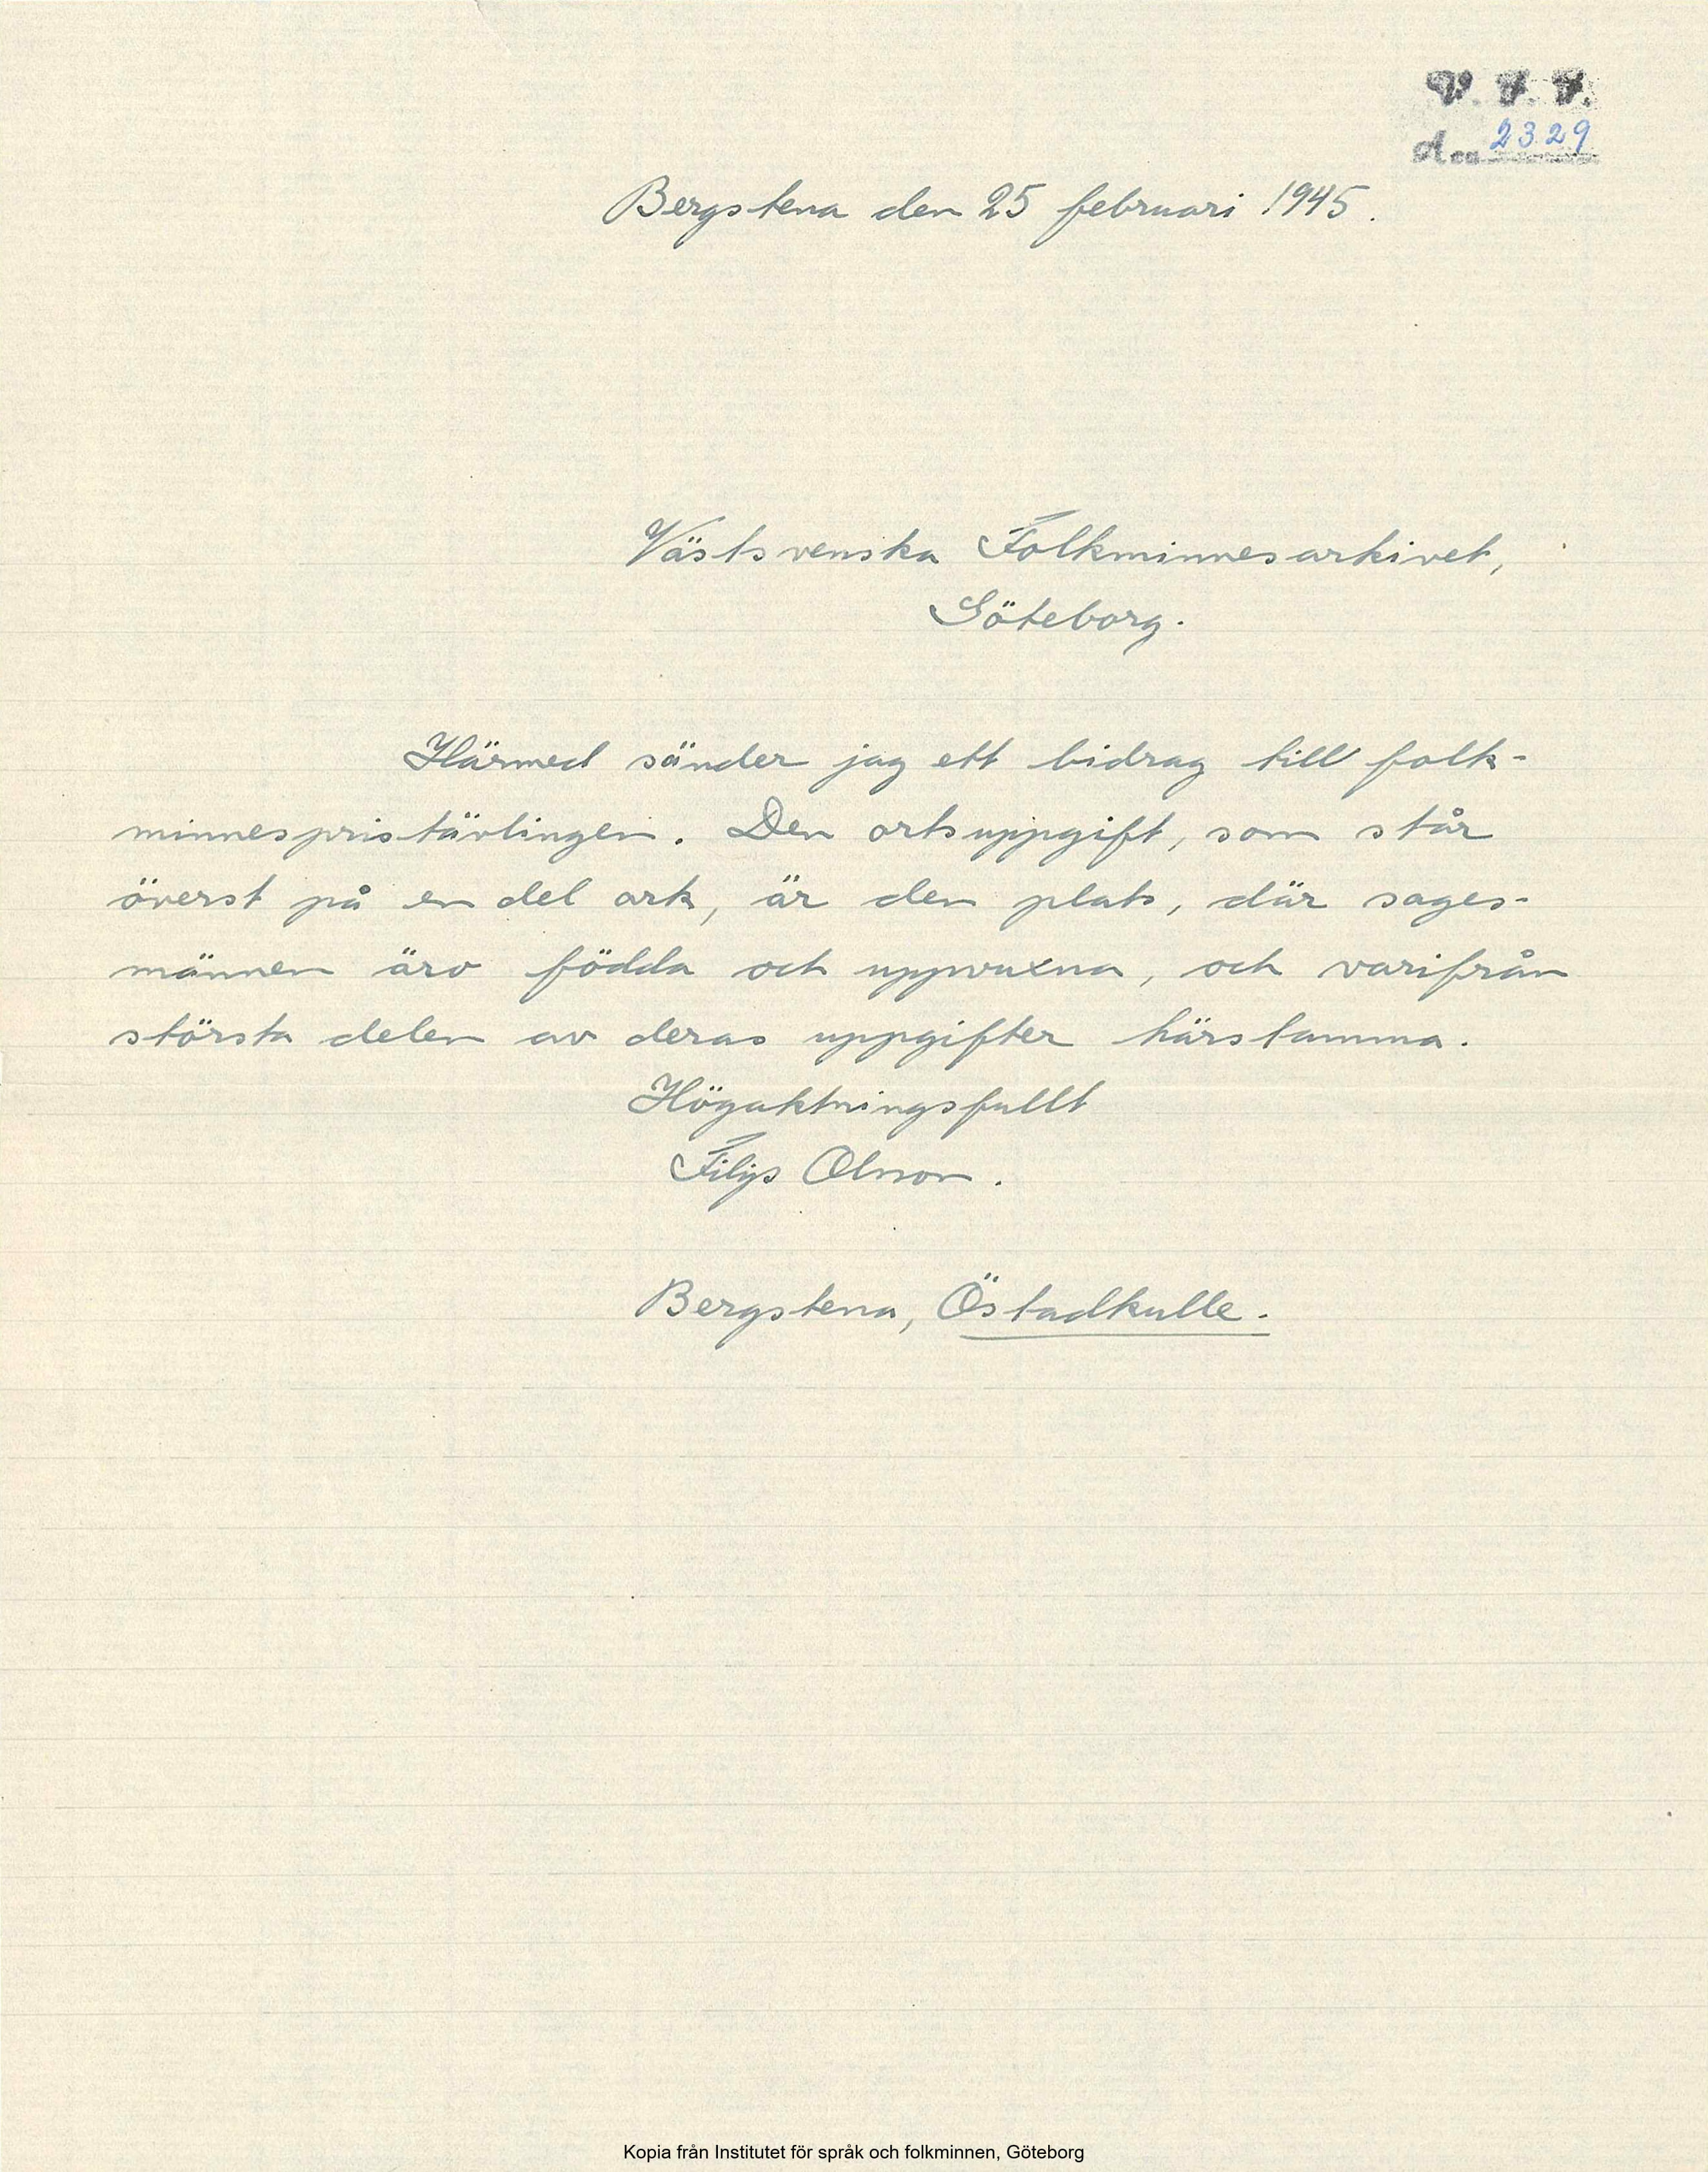 V. F. F.
Acc 2329
Bergstena den 25 februari 1945.
Västsvenska Folkminnesarkivet,
Göteborg.
Härmed sänder jag ett bidrag till folk-
minnespristävlingen. Den ortsuppgift, som står
överst på en del ark, är den plats, där sages-
männen äro födda och uppvuxna, och varifrån
största delen av deras uppgifter härstamma.
Högaktningsfullt
Filip Olsson.
Bergstena, Östadkulle.
Kopia från Institutet för språk och folkminnen, Göteborg